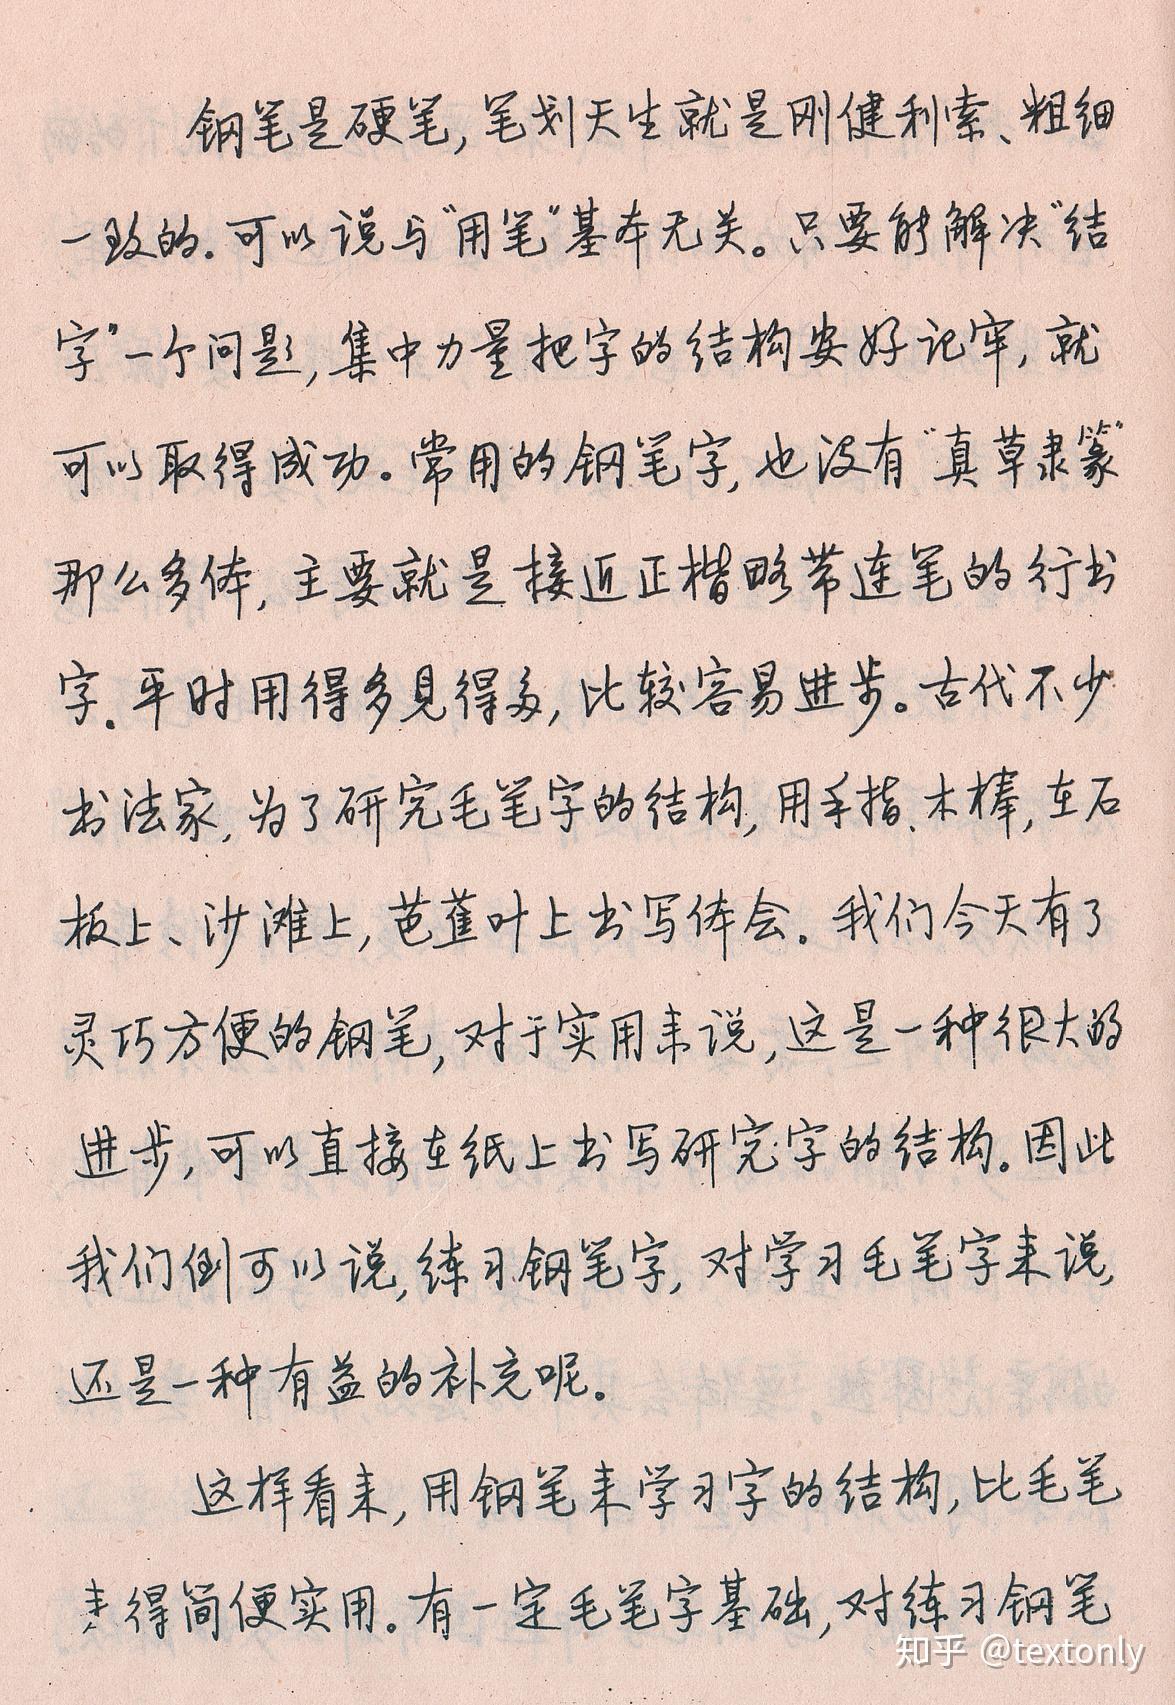 钢笔是硬笔，笔划天生就是刚健利索、粗细
一致的。可以说与“用笔”基本无关。只要能解决“结
字”一个问题，集中力量把字的结构安好记牢，就
可以取得成功。常用的钢笔字，也没有“真草隶篆”
那么多体，主要就是接近正楷略带连笔的行书
字。平时用得多见得多，比较容易进步。古代不少
书法家，为了研究毛笔字的结构，用手指、木棒，在石
板上、沙滩上，芭蕉叶上书写体会。我们今天有了
灵巧方便的钢笔，对于实用来说，这是一种很大的
进步，可以直接在纸上书写研究字的结构。因此
我们倒可以说，练习钢笔字，对学习毛笔字来说，
还是一种有益的补充呢。
这样看来，用钢笔来学习字的结构，比毛笔
来得简便实用。有一定毛笔字基础，对练习钢笔
知乎 @textonly